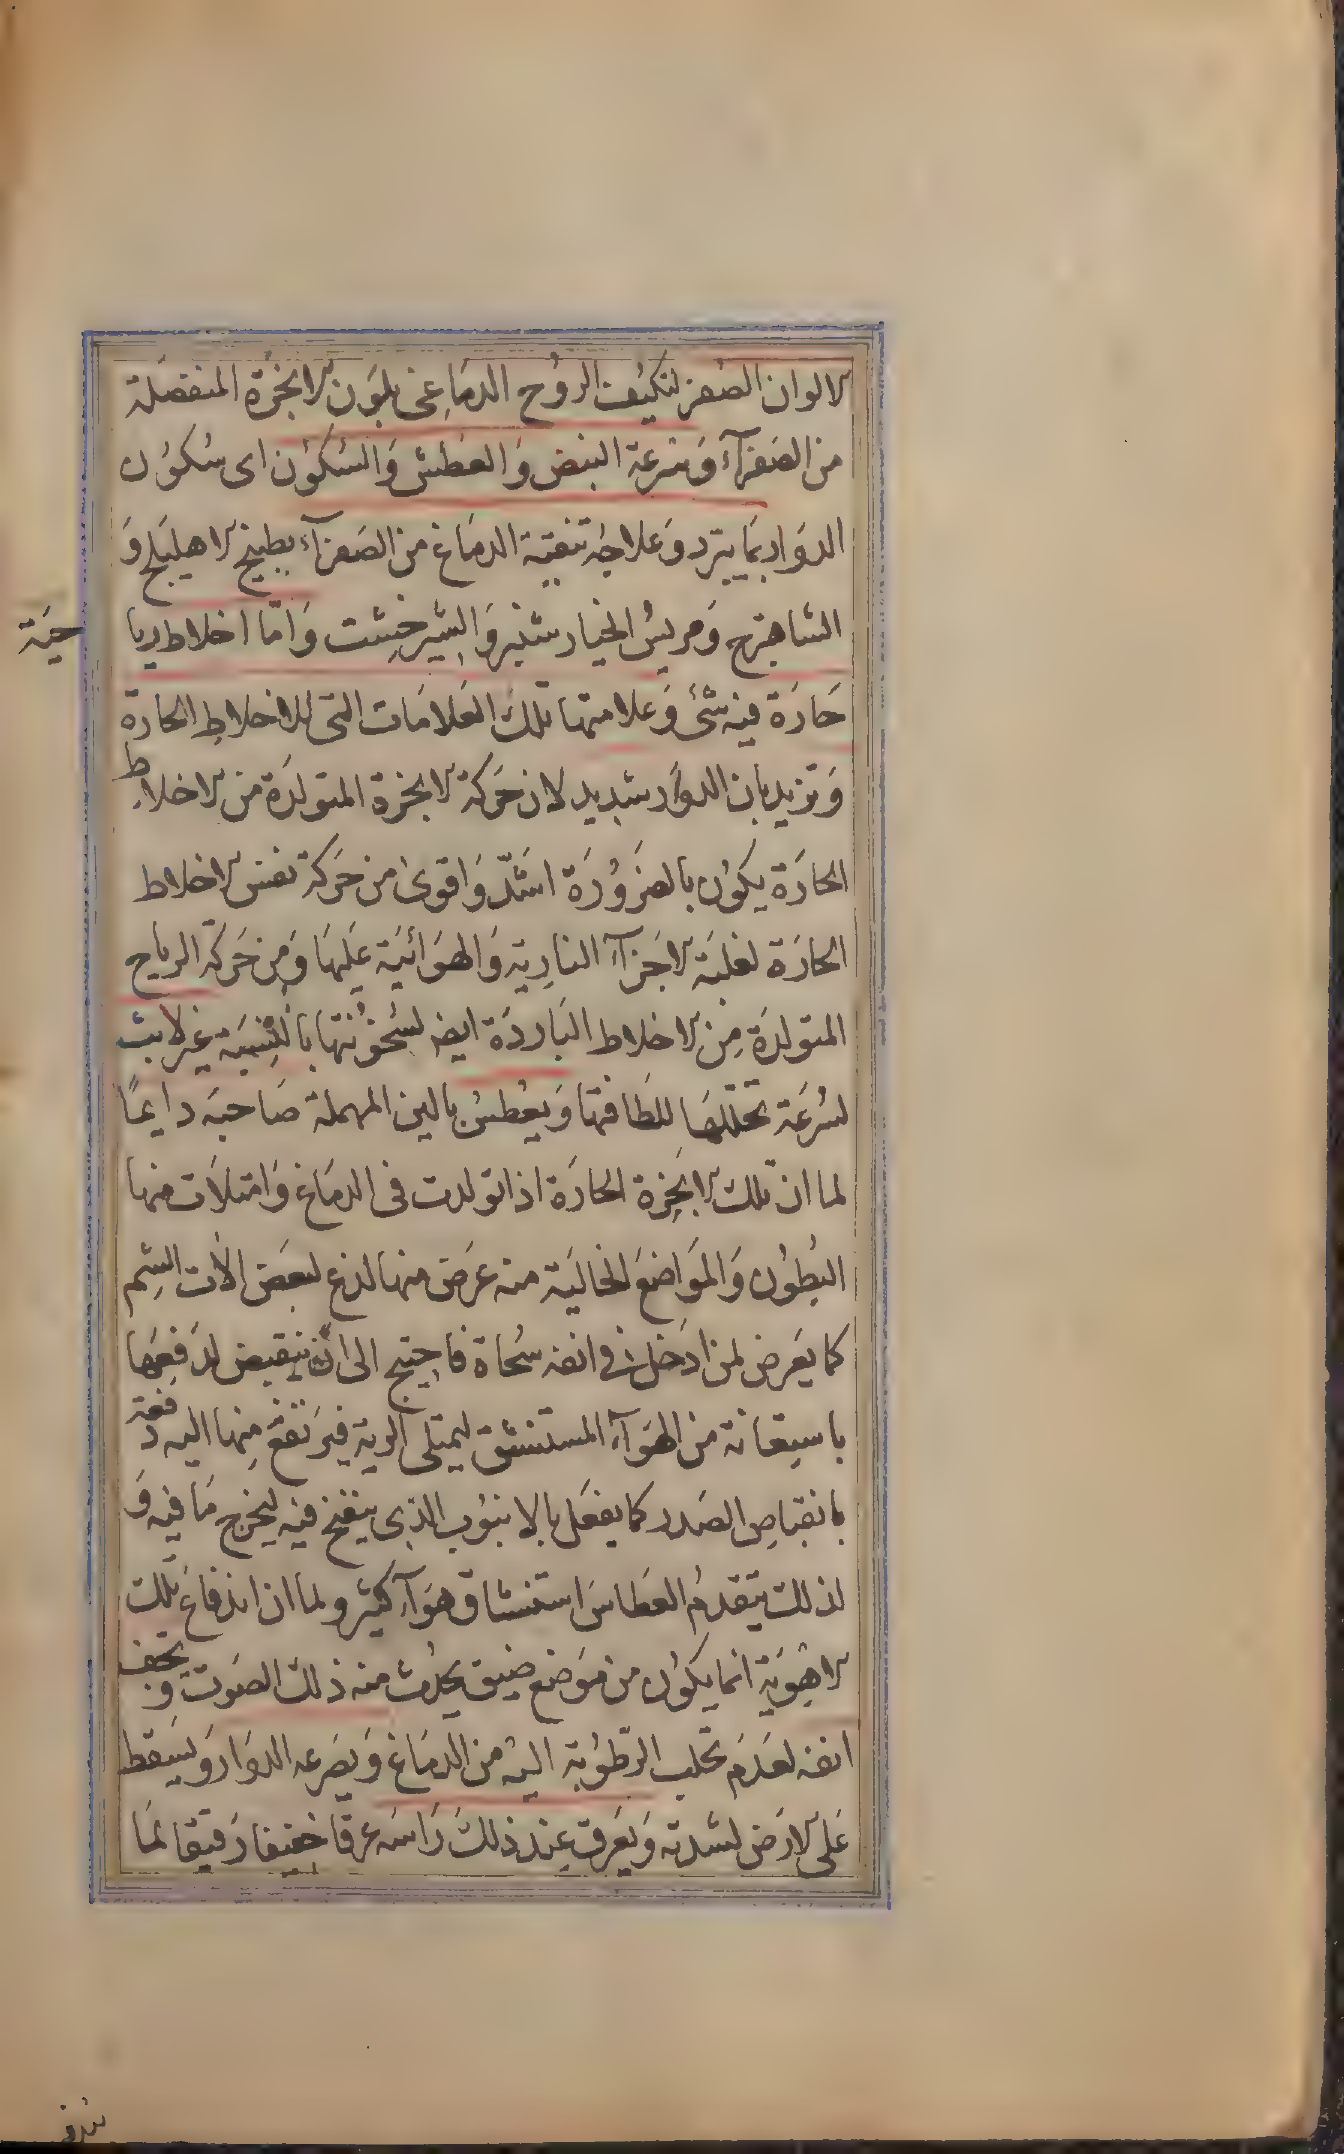 الالوان الصفر لتكيف الروح الدماغى بلون الابخرة المنفصلة
من الصفرآء وسرعة النبض والعطش والسكون اى سكون
الدوار بما يبرد وعلاجه تنقية الدماغ من الصفرآء بطبيخ الاهليلج و
الشاهترج ومريس الخيار شنبر والشيرخشت واما اخلاط ريا
حية
حارة فيه شئ وعلامتها تلك العلامات التى للاخلاط الحارة
وتزيد بان الدوار شديد لان حركة الابخرة المتولدة من الاخلاط
الحارة يكون بالضرورة اشد واقوى من حركة نفس الاخلاط
الحارة لغلبة الاجزآء النارية والهوائية عليها ومن حركة الرياح
المتولدة من الاخلاط الباردة ايضا لسخونتها بالنسبة غير لابث
لسرعة تحللها للطافتها ويعطس بالسين المهملة صاحبه دايما
لما ان تلك الابخرة الحارة اذا تولدت فى الدماغ وامتلات منها
البطون والمواضع الخالية منه عرض منها لذع لبعض الات الشم
كما يعرض لمن ادخل فى انفه سحاة فاحتيج الى ان ينقبض لدفعها
باستعانة من الهوآء المستنشق ليمتلى الرية فيرتفع منها اليه دفعة
بانقباض الصدر كما يفعل بالانبوب الذى ينفخ فيه ليخرج ما فيه و
لذلك يتقدم العطاس استنشاق هوآء كثير ولما ان اندفاع تلك
الاهوية انما يكون من موضع ضيق يحدث منه ذلك الصوت ويجف
انفه لعدم تحلب الرطوبة اليه من الدماغ ويصرعه الدوار ويسقط
على الارض لشدته ويعرق عند ذلك راسه عرقا خفيفا رقيقا لما